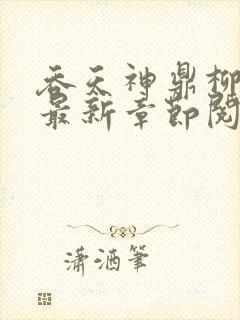 吞天神鼎柳
最新章節閱
瀟酒筆